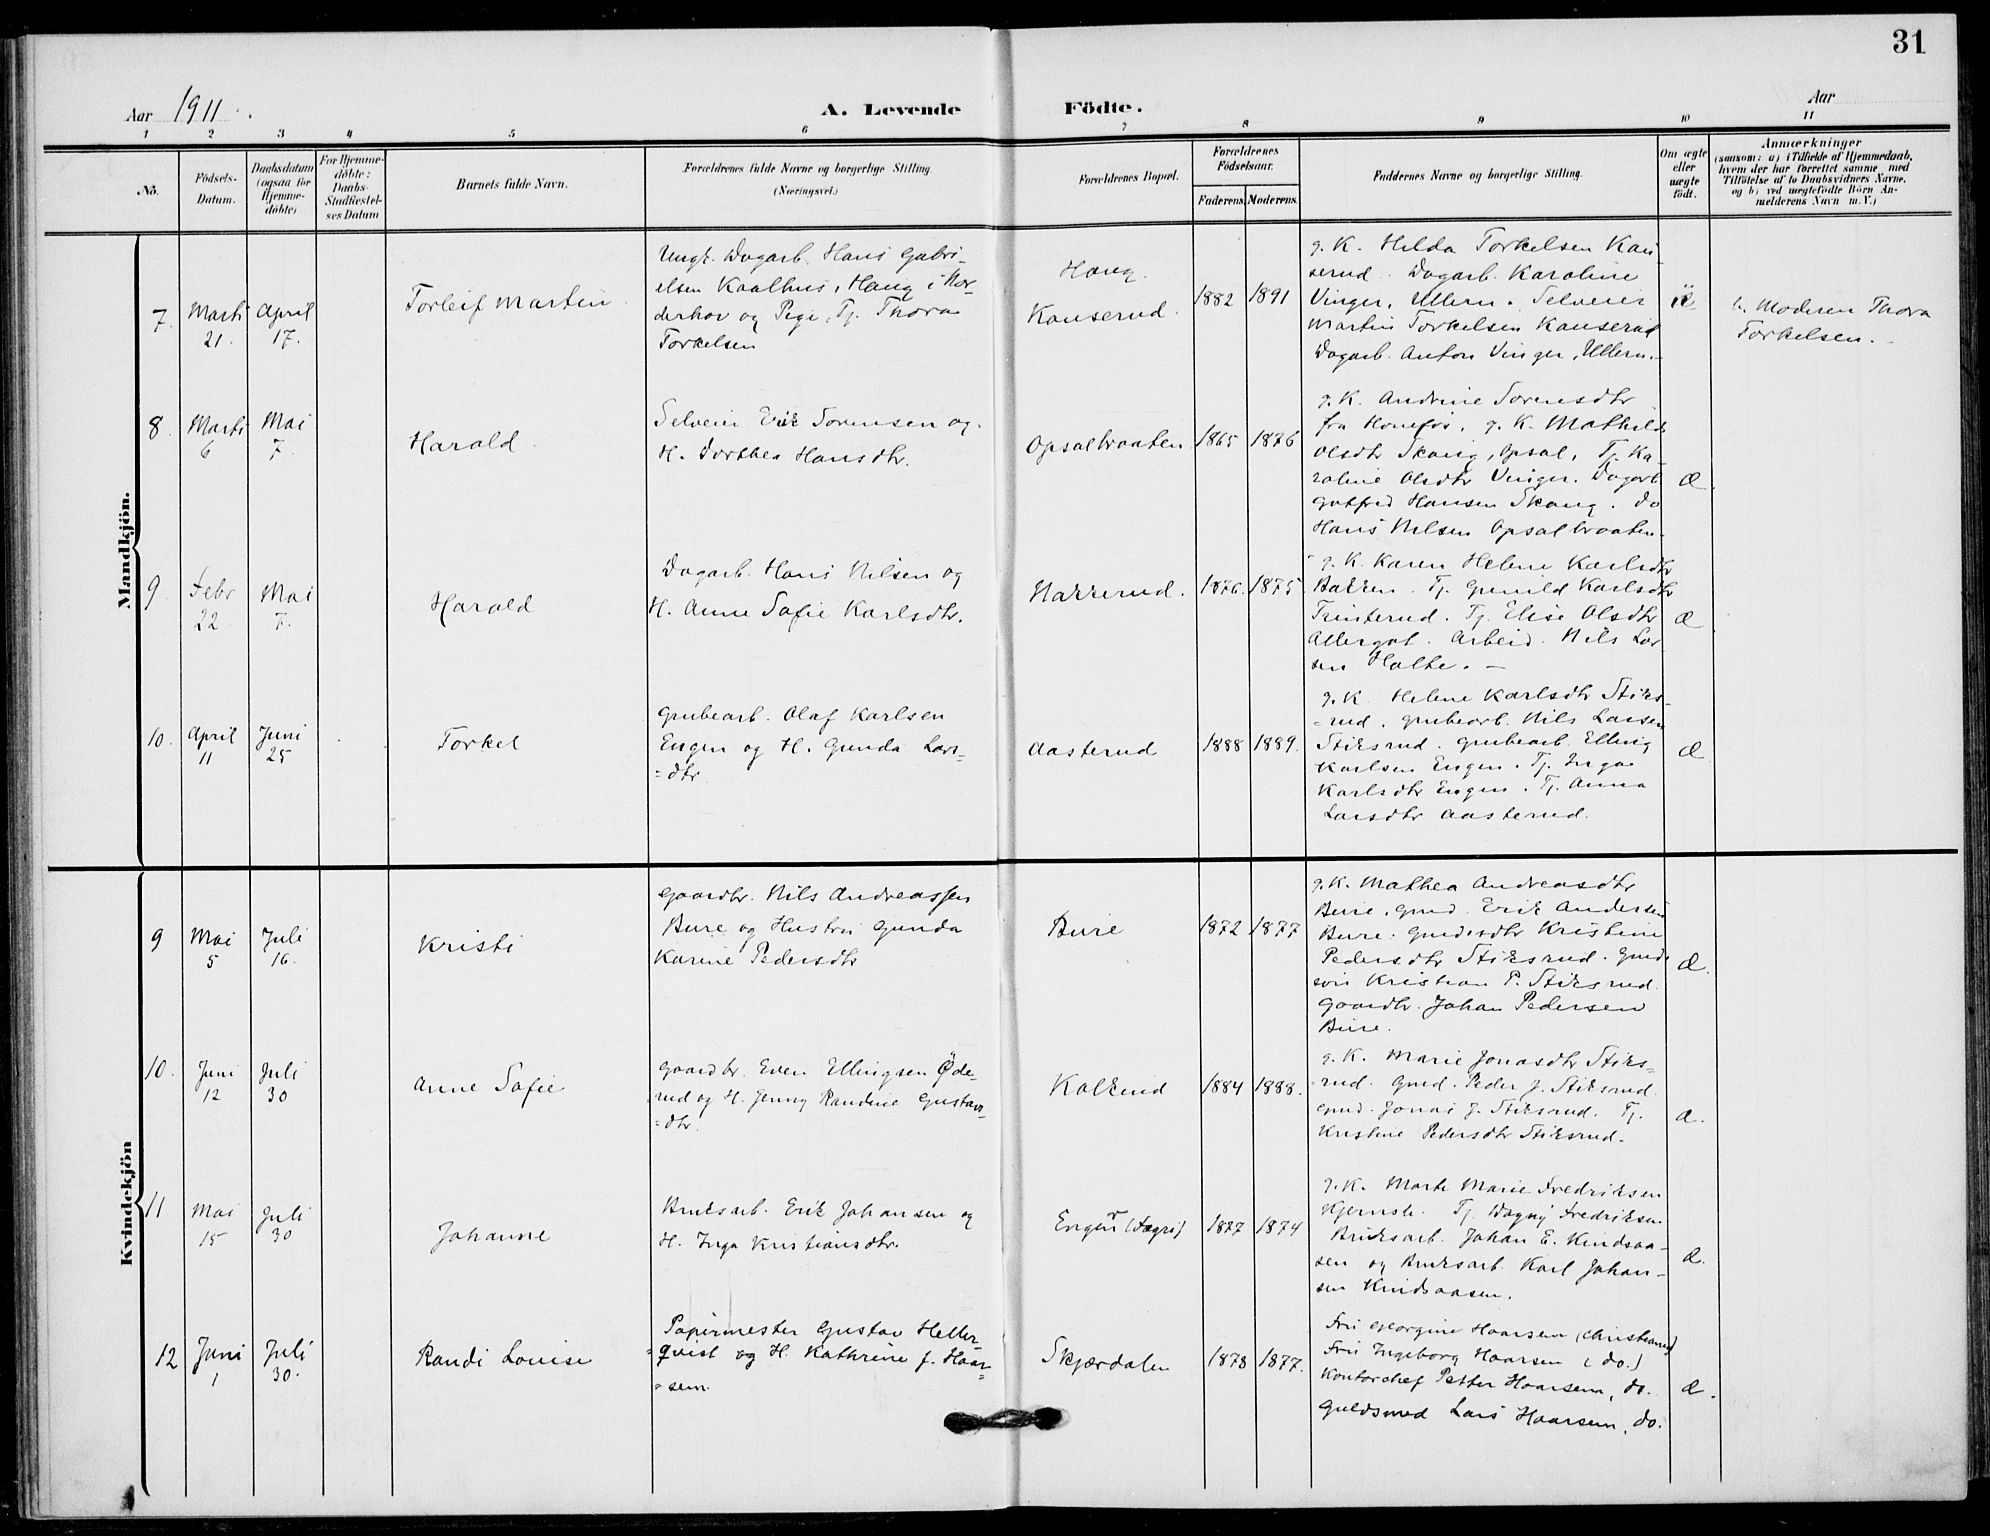 31
Aar 1911.
A. Levende Födte.
Aar
1 2 3 4 5 6 7 8 9 10 11
No.
Födsels-
Datum.
Daabsdatum
(ogsaa for
Hjemme-
döbte)
For Hjemme-
döbte:
Daabs-
Stadfæstel-
ses Datum
Barnets fulde Navn.
Forældrenes fulde Navne og borgerlige Stilling.
(Næringsvei.)
Forældrenes Bopæl.
Forældrenes
Födselsaar.
Faderens. Moderens.
Faddernes Navne og borgerlige Stilling.
Om ægte
eller
uægte
födt.
Anmærkninger
(saasom: a) i Tilfælde af Hjemmedaab,
hvem der har forrettet samme med
Tilföielse af to Daabsvidners Navne,
og b) ved uægtefödte Börn An-
melderens Navn m. V.)
Mandkjön.
7.
Marti
21.
April
17.
Torleif Martin
Ungk. Dagarb. Hans Gabri-
elsen Kaalhus, Haug i Nor-
derhov og Pige, Tj. Thora
Torkelsen
Haug.
Kauserud.
1882 1891
g. K. Hilda Torkelsen Kau-
serud. Dagarb. Karoline
Vinger, Ullern. Selveier
Martin Torkelsen Kauserud
Dagarb. Anton Vinger, Ullern.-
Moderen Thora
Torkelsen.
8.
Marti
6
Mai
7.
Harald
Selveier Erik Sorensen og
H. Dorthea Hansdtr.
Opsalbraaten
1865 1876
g. K. Andrine Sorensdtr
fra Honefos. g. K. Mathilde
Olsdtr Skaug, Opsal, Tj. Ka-
roline Olsdtr Vinger. Dagarb
Gotfred Hansen Skaug. do
Hans Nilsen Opsalbraaten.
Æ.
9.
Febr
22
Mai
7.
Harald
Dagarb. Hans Nilsen og
H. Anne Sofie Karlsdtr.
Nakkerud.
1876. 1875
g. K. Karen Helene Karlsdtr
Bakken. Tj. Gunild Karlsdtr
Trinterud. Tj. Elise Olsdtr
Allergot. Arbeid. Nils Lar
sen Holte. -
Æ
10.
April
11
Juni
25
Torkel
Grubearb. Olaf Karlsen
Engen og H. Gunda Lars-
=dtr
Aasterud
1888 1889.
g. K. Helene Karlsdtr Stiks-
=rud. Grubearb. Nils Larsen
Stiksrud. Grubearb. Elling
Karlsen Engen. Tj. Inga
Karlsdtr Engen. Tj. Anna
Larsdtr Aasterud.
Æ
Kvindekjön
9
Mai
5
Juli
16.
Kristi
Gaardbr. Nils Andreassen
Bure og Hustru Gunda
Karine Pedersdtr
Bure
1872 1877
g. K. Mathea Andreasdtr
Bure. Gmd. Erik Andersen
Bure. Gmdsdtr Kristine
Pedersdtr Stiksrud. Gmd.
son Kristian P. Stiksrud.
Gaardbr. Johan Pedersen
Bure.
Æ.
10.
Juni
12
Juli
30
Anne Sofie
Gaardbr. Even Ellingsen Öde-
rud og H. Jenny Randine Gustavs
=dtr.
Kalkrud
1884 1888.
g. K. Marie Jonasdtr Stiks-
rud. Gmd. Peder J. Stiksrud.
Gmd. Jonas J. Stiksrud. Tj.
Kristine Pedersdtr Stiksrud.
Æ.
11
Mai
15
Juli
30
Johanne
Bruksarb. Erik Johansen og
H. Inga Kristiansdtr.
Engen (Fægri)
1877 1874
g. K. Marte Marie Fredriksen
Gjernsh. Tj. Dagny Fredriksen
Bruksarb. Johan E. Kindsaa-
sen og Bruksarb. Karl Johan-
sen Kindsaasen.
Æ.
12
Juni
1
Juli
30.
Randi Louise
Papirmester Gustav Heller-
=qvist og H. Kathrine f. Haar-
=sem.
Skjærdalen
1878 1877.
Fru Georgine Haarsem (Christiania)
Fru Ingeborg Haarsem (do.)
Kontorchef Petter Haarsem, do.
Guldsmed Lars Haarsem, do.
Æ.